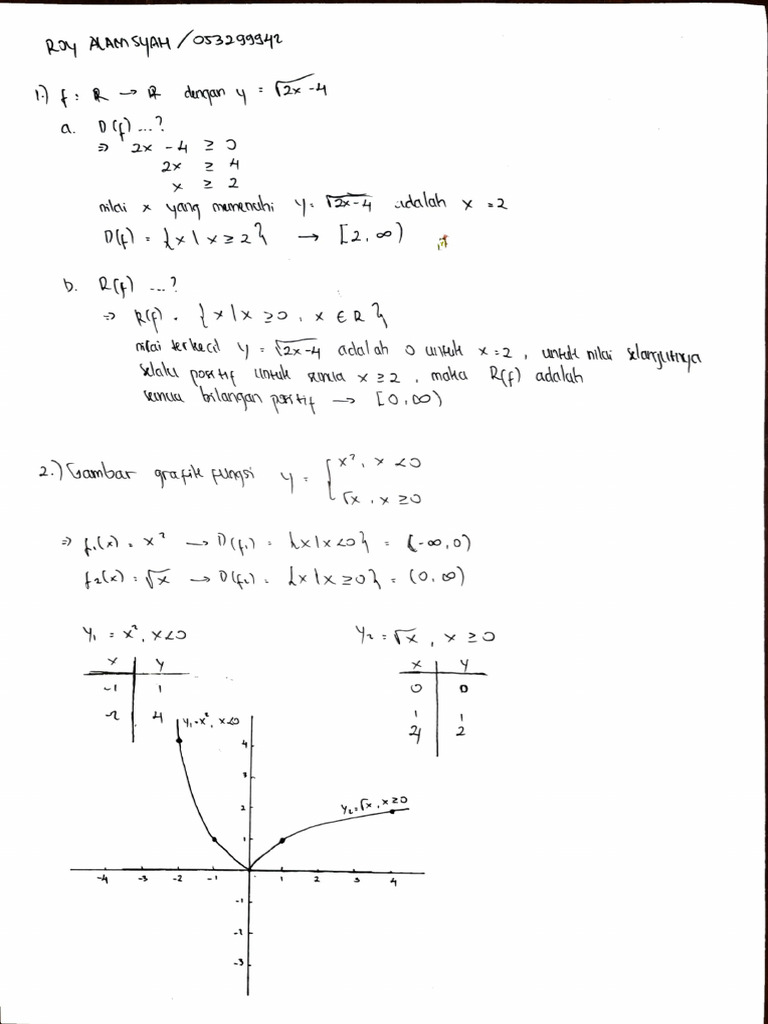 ROY ALAMSYAH / 053299942
1.) f : R → R dengan y = √2x-4
a. D(f) ...?
⇒ 2x - 4 ≥ 0
2x ≥ 4
x ≥ 2
nilai x yang memenuhi y = √2x-4 adalah x = 2
D(f) = {x | x ≥ 2} → [2, ∞)
b. R(f) ...?
⇒ R(f) = {x | x ≥ 0, x ∈ R}
nilai terkecil y = √2x-4 adalah 0 untuk x = 2, untuk nilai selanjutnya
selalu positif untuk semua x ≥ 2, maka R(f) adalah
semua bilangan positif → [0, ∞)
2.) Gambar grafik fungsi y = { x², x < 0
√x, x ≥ 0
⇒ f₁(x) = x² → D(f₁) = {x | x < 0} = (-∞, 0)
f₂(x) = √x → D(f₂) = {x | x ≥ 0} = (0, ∞)
y₁ = x², x < 0 y₂ = √x, x ≥ 0
x y x y
-1 1 0 0
-2 4 1 1
4 2
y₁ = x², x < 0
4
3
2
y₂ = √x, x ≥ 0
1
-4 -3 -2 -1 1 2 3 4
-1
-2
-3